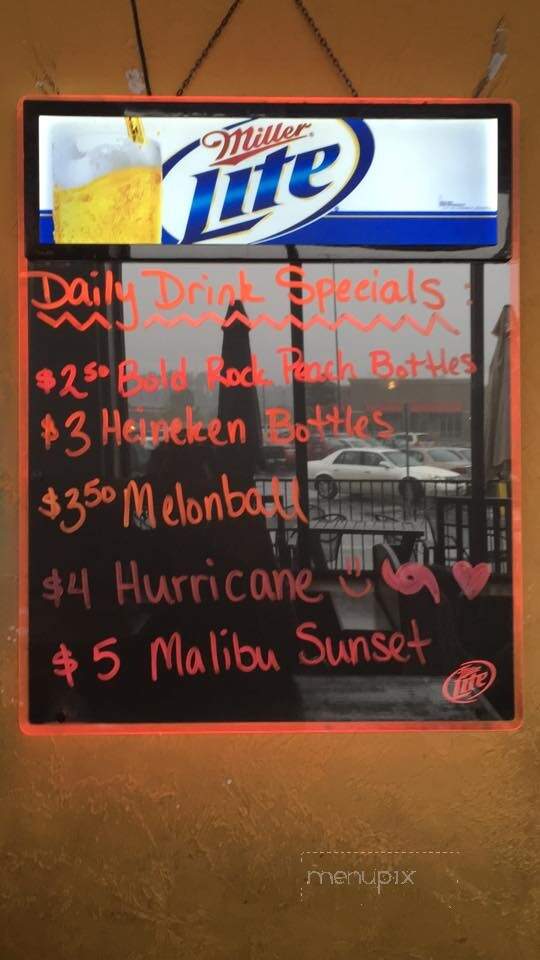 Miller
Lite
Daily Drink Specials:
$2.50 Bold Rock Peach Bottles
$3 Heineken Bottles
$3.50 Melonball
$4 Hurricane
$5 Malibu Sunset
Lite
menupix